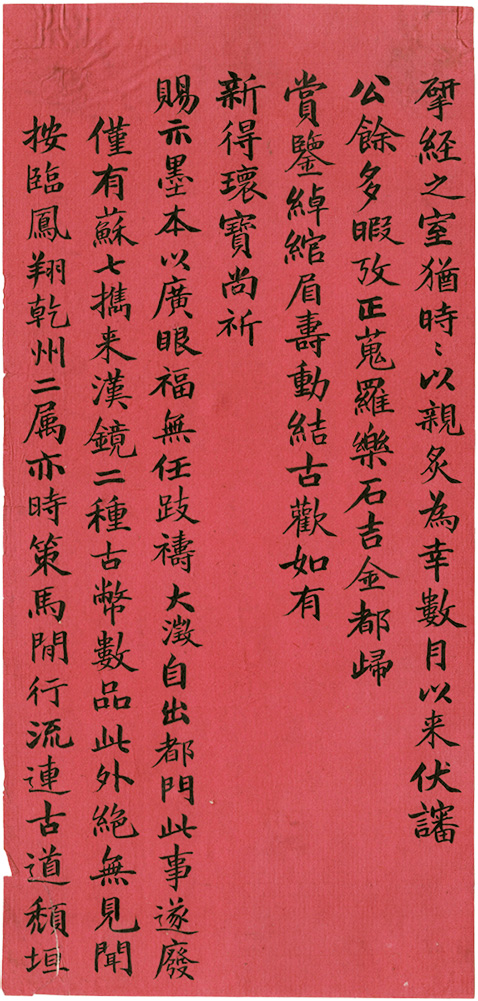 揅經之室猶時〻以親炙為幸數月以来伏讅
公餘多暇攷正蒐羅樂石吉金都歸
賞鑒綽綰眉壽動結古歡如有
新得瓌寶尚祈
賜示墨本以廣眼福無任跂禱大澂自出都門此事遂廢
僅有蘇七攜来漢鏡二種古幣數品此外絶無見聞
按臨鳳翔乾州二属亦時策馬閒行流連古道頽垣